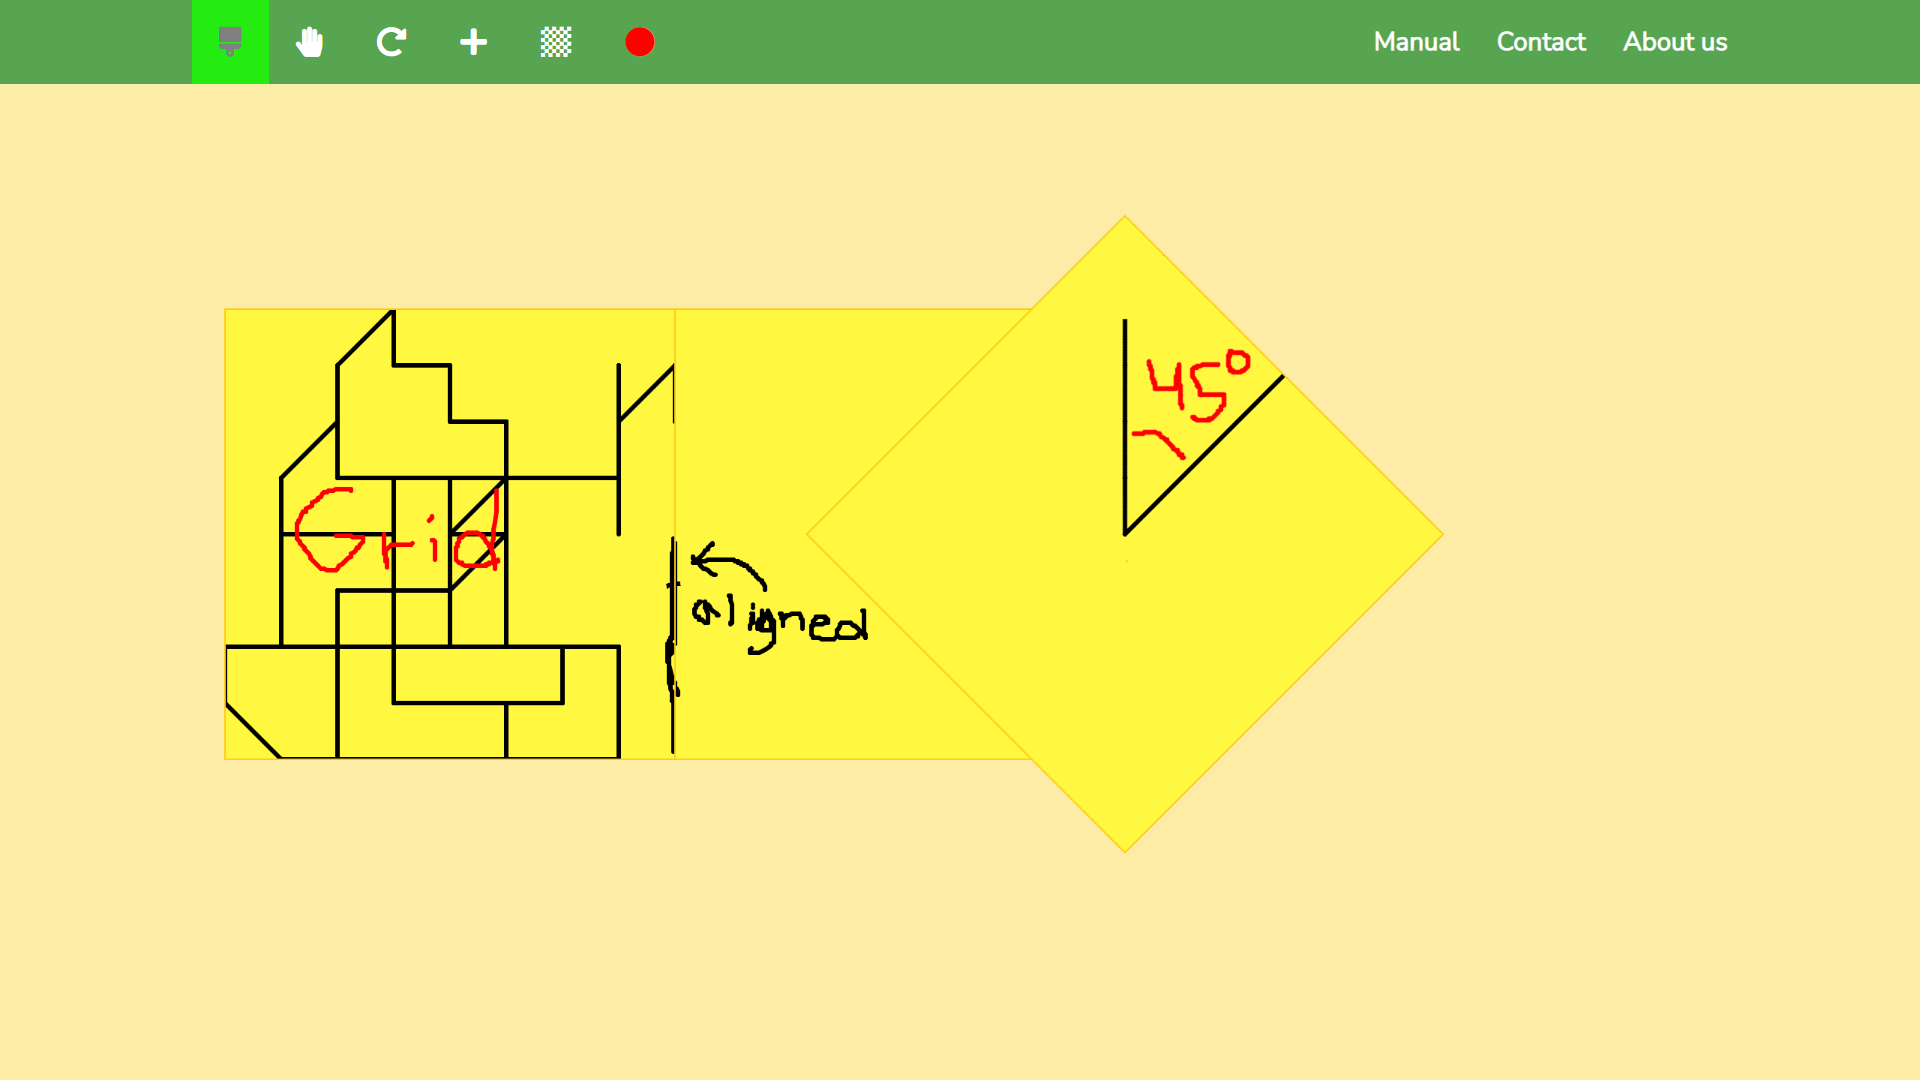 Manual Contact About us
45°
Grid
aligned